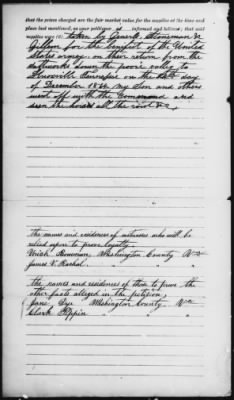 that the prices charged are the fair market value for the supplies at the time and
place last mentioned, as your petitioner is informed and believes; that said
supplies were (4) taken by Generals Stoneman &
Gillem for the benefit of the United
States army, on their return from the
Saltworks down the poor valley to
Tennessee on the day
of December 1864 My Son and others
went off with the Command and
seen the horses all the
the names and residences of witnesses who will be
relied upon to prove loyalty.
Bowman, Washington County Va
James V.
the names and residences of those to prove the
other facts alleged in the petition,
Jane Dye Washington County Va
Clark Pippin " "